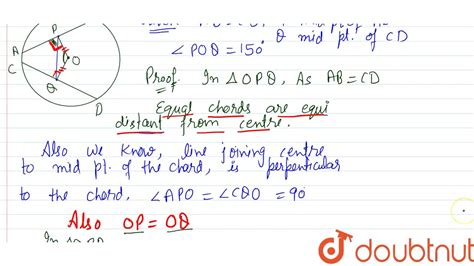 P
A
C
O
Q
D
mid pt. of
Q mid pt. of CD
∠POQ = 150°
Proof. In △OPQ, As AB=CD
Equal chords are equi
distant from centre.
Also we know, line joining centre
to mid pt. of the chord, is perpendicular
to the chord. ∠APO = ∠CQO = 90
Also OP = OQ
doubtnut